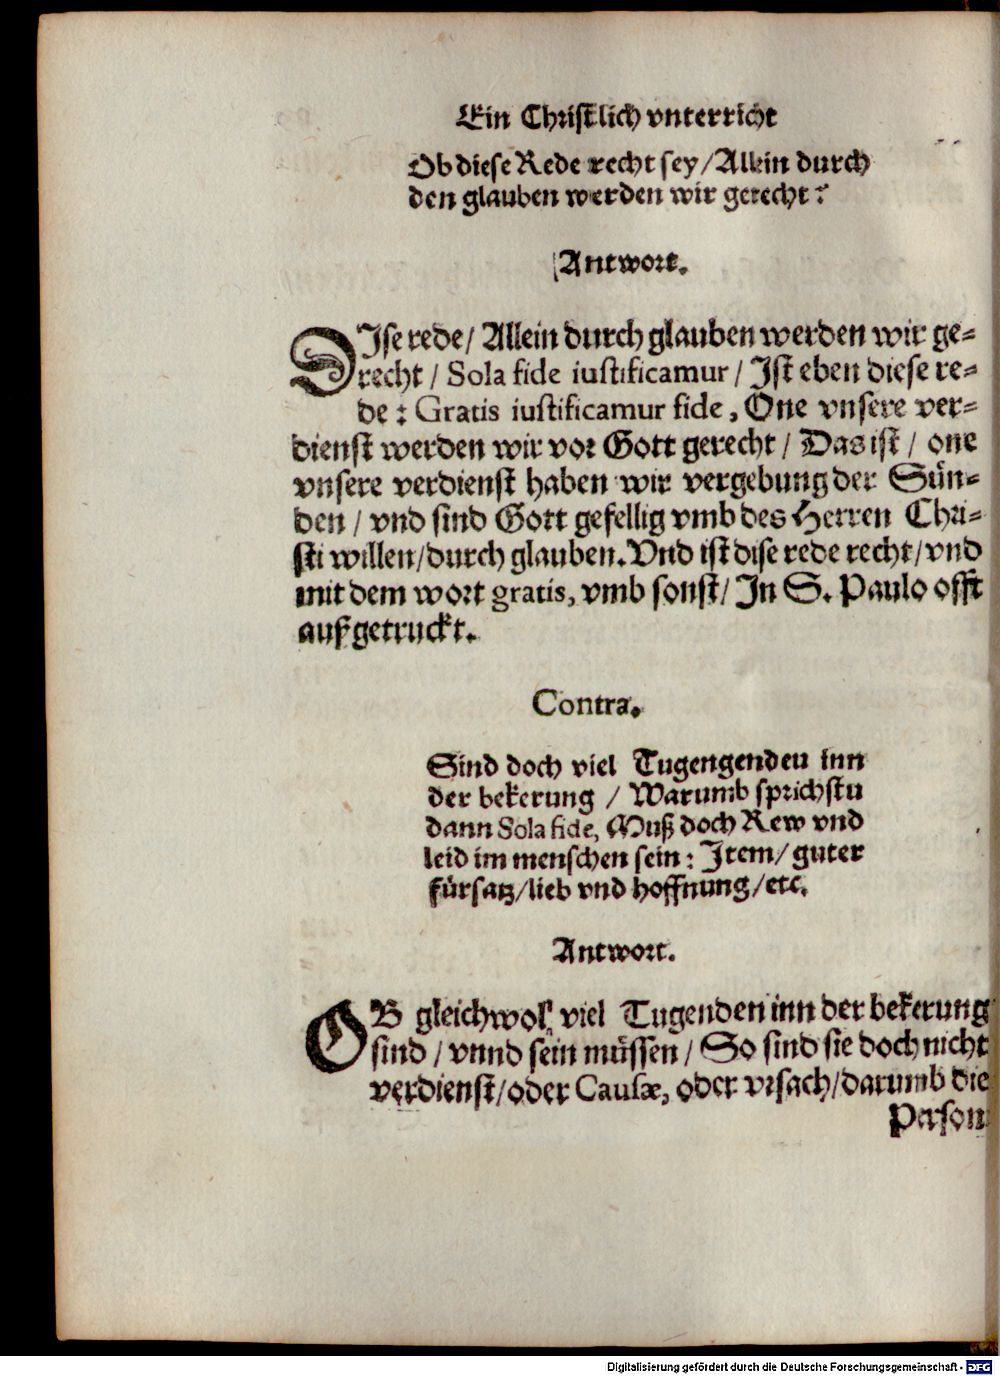 Ein Christlich vnterricht
Ob diese Rede recht sey/Allein durch
den glauben werden wir gerecht?
Antwort.
DIse rede/ Allein durch glauben werden wir ge-
recht / Sola fide iustificamur / Ist eben diese re-
de : Gratis iustificamur fide, One vnsere ver-
dienst werden wir vor Gott gerecht / Das ist / one
vnsere verdienst haben wir vergebung der Sün-
den / vnd sind Gott gefellig vmb des Herren Chri-
sti willen/durch glauben. Vnd ist dise rede recht/vnd
mit dem wort gratis, vmb sonst/ In S. Paulo offt
außgetruckt.
Contra.
Sind doch viel Tugengenden inn
der bekerung / Warumb sprichstu
dann Sola fide, Muß doch Rew vnd
leid im menschen sein: Item/ guter
fürsatz/lieb vnd hoffnung/etc.
Antwort.
OB gleichwol viel Tugenden inn der bekerung
sind / vnnd sein müssen / So sind sie doch nicht
verdienst/oder Causæ, oder vrsach/darumb die
Person
Digitalisierung gefördert durch die Deutsche Forschungsgemeinschaft - DFG